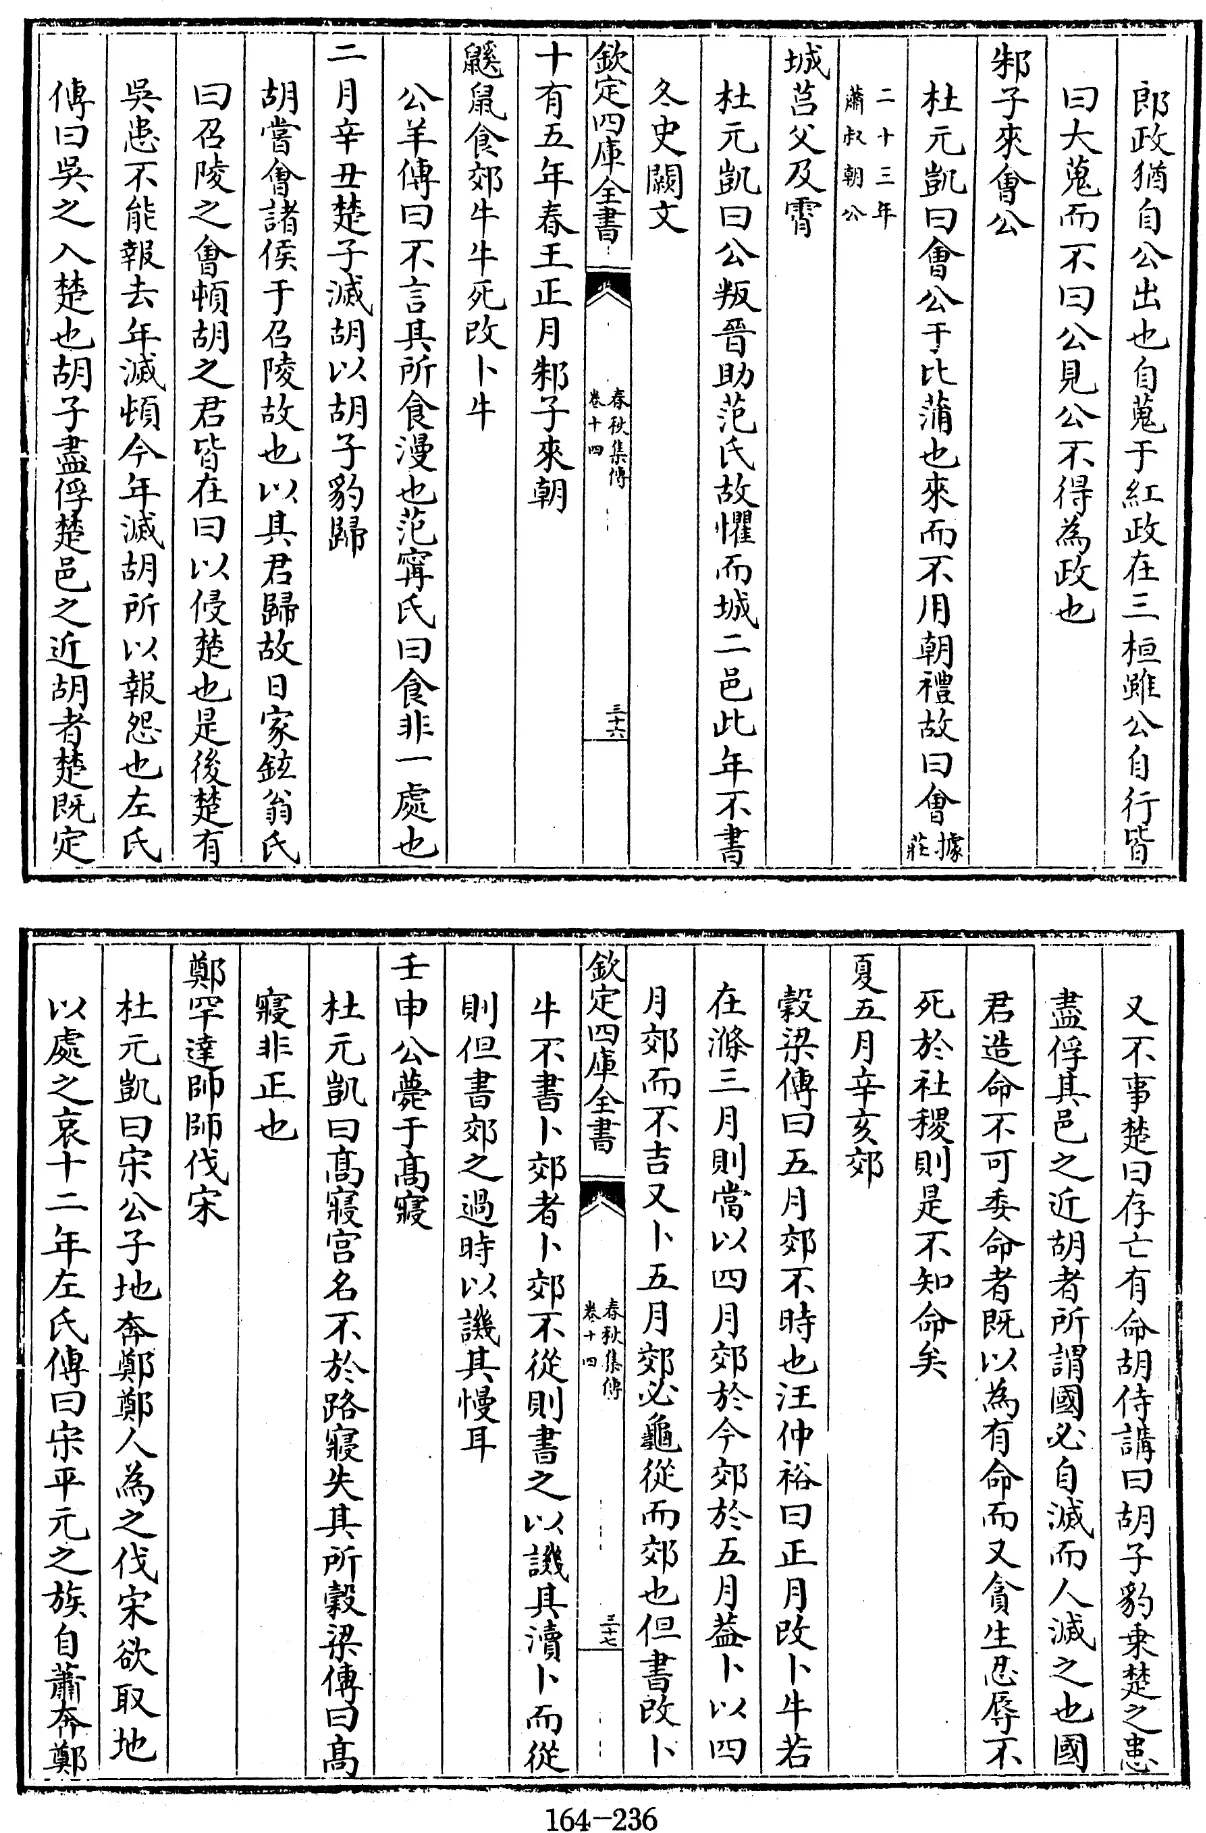 郎政猶自公出也自蒐于紅政在三桓雖公自行皆
曰大蒐而不曰公見公不得為政也
邾子來會公
杜元凱曰會公于比蒲也來而不用朝禮故曰會據莊
二十三年
蕭叔朝公
城莒父及霄
杜元凱曰公叛晉助范氏故懼而城二邑此年不書
冬史闕文
欽定四庫全書
春秋集傳
卷十四
三十六
十有五年春王正月邾子來朝
鼷鼠食郊牛牛死改卜牛
公羊傳曰不言其所食漫也范甯氏曰食非一處也
二月辛丑楚子滅胡以胡子豹歸
胡嘗會諸侯于召陵故也以其君歸故日家鉉翁氏
曰召陵之會頓胡之君皆在曰以侵楚也是後楚有
吳患不能報去年滅頓今年滅胡所以報怨也左氏
傳曰吳之入楚也胡子盡俘楚邑之近胡者楚既定
又不事楚曰存亡有命胡侍講曰胡子豹乗楚之患
盡俘其邑之近胡者所謂國必自滅而人滅之也國
君造命不可委命者既以為有命而又貪生忍辱不
死於社稷則是不知命矣
夏五月辛亥郊
穀梁傳曰五月郊不時也汪仲裕曰正月改卜牛若
在滌三月則當以四月郊於今郊於五月葢卜以四
月郊而不吉又卜五月郊必龜從而郊也但書改卜
欽定四庫全書
春秋集傳
卷十四
三十七
牛不書卜郊者卜郊不從則書之以譏其瀆卜而從
則但書郊之過時以譏其慢耳
壬申公薨于髙寢
杜元凱曰髙寢宫名不於路寢失其所穀梁傳曰髙
寢非正也
鄭罕達帥師伐宋
杜元凱曰宋公子地奔鄭鄭人為之伐宋欲取地
以處之哀十二年左氏傳曰宋平元之族自蕭奔鄭
164-236